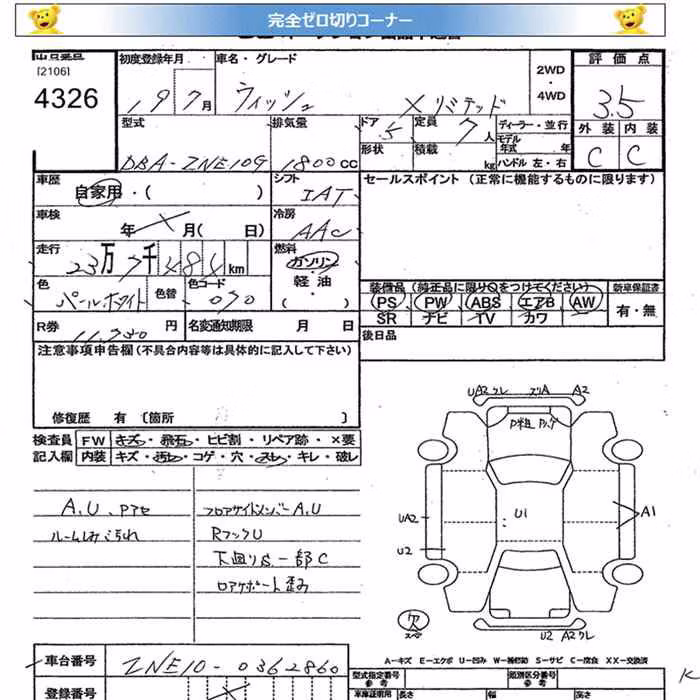 完全ゼロ切りコーナー
出品番号 初度登録年月 車名・グレード 2WD・4WD 評価点
[2106]
4326 19 7月 ウィッシュ Xリミテッド 3.5
型式 排気量 ドア 5 定員 7人 ディーラー・並行 外装 内装
モデル年式 年
DBA-ZNE10G 1800cc 形状 積載 kg ハンドル 左・右 C C
車歴 自家用・( ) シフト IAT セールスポイント (正常に機能するものに限ります)
車検 年 月( 日) 冷房 AAC
走行 23万7千484km 燃料 ガソリン・軽油・( )
色 パールホワイト 色替 色コード 070
装備品(純正品に限り○をつけてください) 新車保証書
PS PW ABS エアB AW 有・無
SR ナビ TV カワ
R券 円 名変通知期限 月 日 後日品
注意事項申告欄(不具合内容等は具体的に記入して下さい)
修復歴 有 〔箇所 〕
検査員 FW キズ・飛石・ヒビ割・リペア跡・×要
記入欄 内装 キズ・汚れ・コゲ・穴・スレ・キレ・破レ
A、U、Pアセ フロアサイドメンバーA、U
ルームしみ汚れ RフックU
下廻りS一部C
ロアサポート歪み
A2
U1
A1
UA2
U2
欠
A-キズ E-エクボ U-凹み W-補修跡 S-サビ C-腐食 XX-交換済
車台番号 ZNE10-0362860
型式指定番号 参考 類別区分番号 参考
登録番号 車庫証明用 長さ 幅 高さ